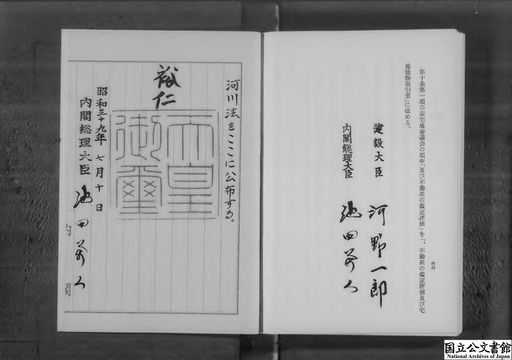 第十条第一項の表宅地審議会の項中「及び不動産の鑑定評価」を「、不動産の鑑定評価及び宅
地建物取引業」に改める。
建設大臣 河野一郎
内閣総理大臣 池田勇人
河川法をここに公布する。
裕仁
天皇
御璽
昭和三十九年七月十日
内閣総理大臣 池田勇人
国立公文書館
National Archives of Japan